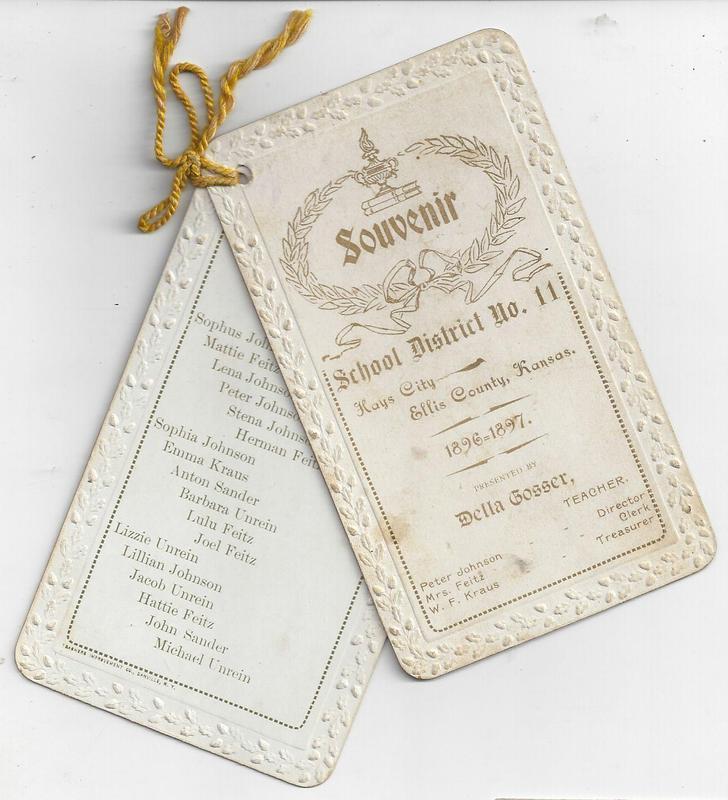 Souvenir
School District No. 11
Hays City
Ellis County, Kansas.
1896-1897.
PRESENTED BY
Della Gosser,
TEACHER.
Peter Johnson Director
Mrs. Feitz Clerk
W. F. Kraus Treasurer
Sophus
Mattie Feitz
Lena Johnson
Peter Johnson
Stena Johnson
Herman Feitz
Sophia Johnson
Emma Kraus
Anton Sander
Barbara Unrein
Lulu Feitz
Joel Feitz
Lizzie Unrein
Lillian Johnson
Jacob Unrein
Hattie Feitz
John Sander
Michael Unrein
IMPROVEMENT CO., DANVILLE, N. Y.